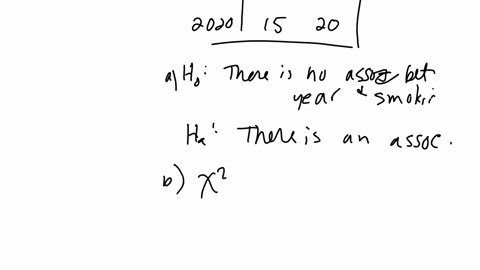 2020 | 15 20
a) H₀: There is no assoc bet
year & smokin
Hₐ: There is an assoc.
b) χ²